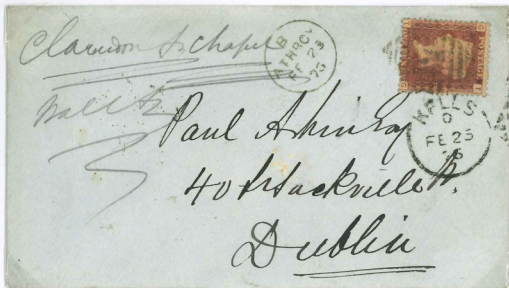 Clarendon St Chapel
ATHBOY
B
FE 23
75
KELLS
D
FE 23
Paul Askin Esq
40 Sackville St.
Dublin